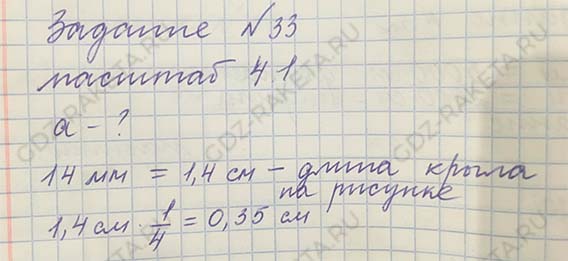 Задание №33
масштаб 4:1
а - ?
14 мм = 1,4 см - длина крыла
на рисунке
1,4 см · 1/4 = 0,35 см
GDZ-RAKETA.RU